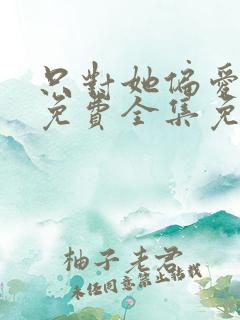 只對她偏愛
免費全集免
柚子老君
未经同意禁止转载